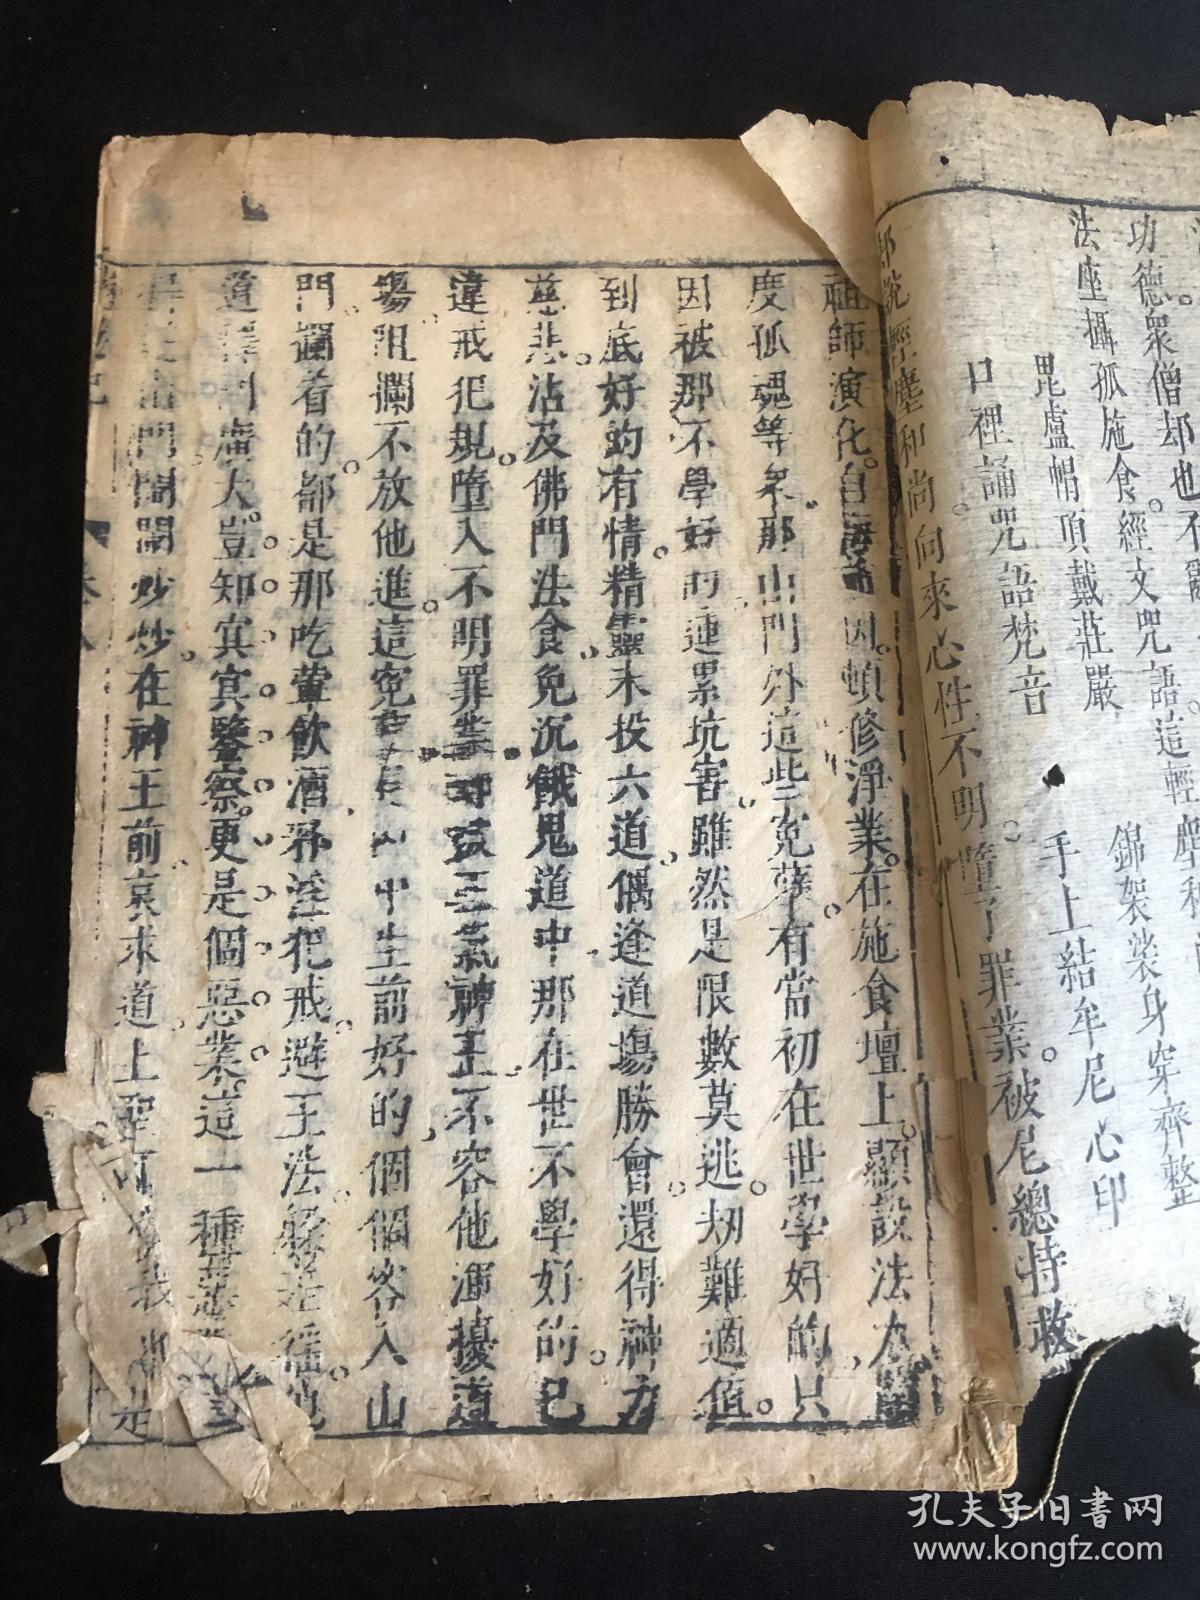 功德衆僧却也不
法座攝孤施食。經文咒語。這輕塵和
毘盧帽頂戴莊嚴 錦袈裟身穿齊整
口裡誦咒語梵音 手上結牟尼心印
却說輕塵和尚向來心性不明。墮了罪業。被尼總持救
祖師演化。自 因頓修淨業。在施食壇上。顯設法力
度孤魂等衆。那山門外這些冤孽。有當初在世學好的。只
因被那不學好的連累坑害。雖然是限數莫逃。劫難適值。
到底好的有情精靈。未投六道。偶逢道場勝會。還得神力
慈悲。沾及佛門法食。免沉餓鬼道中。那在世不學好的。已
違戒犯規。墮入不明罪業。 神王不容他混擾道
場。阻攔不放他進。這冤 生前好的。個個容入山
門。攔着的。都是那吃葷飲酒。邪淫犯戒。避王法 他
道 廣大。豈知冥冥鑒察。更是個惡業。這一種
山門閙閙炒炒。在神王前。哀求道。上聖 我
卷八
孔夫子旧书网
www.kongfz.com